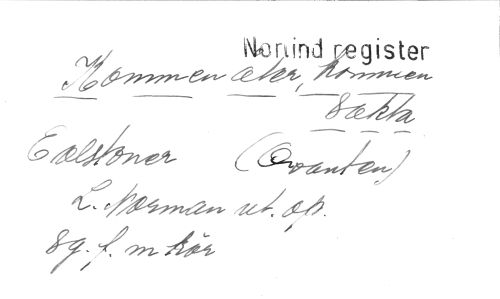 Norlind register
Kommen äter, kommen
säkta
Ealstoner (Ovanten)
L. Norman ut. op.
sg. f. m kör